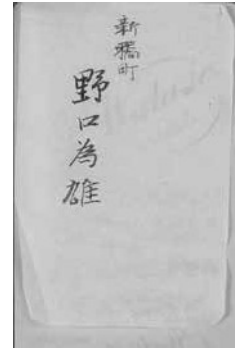 新橋町
野口為雄